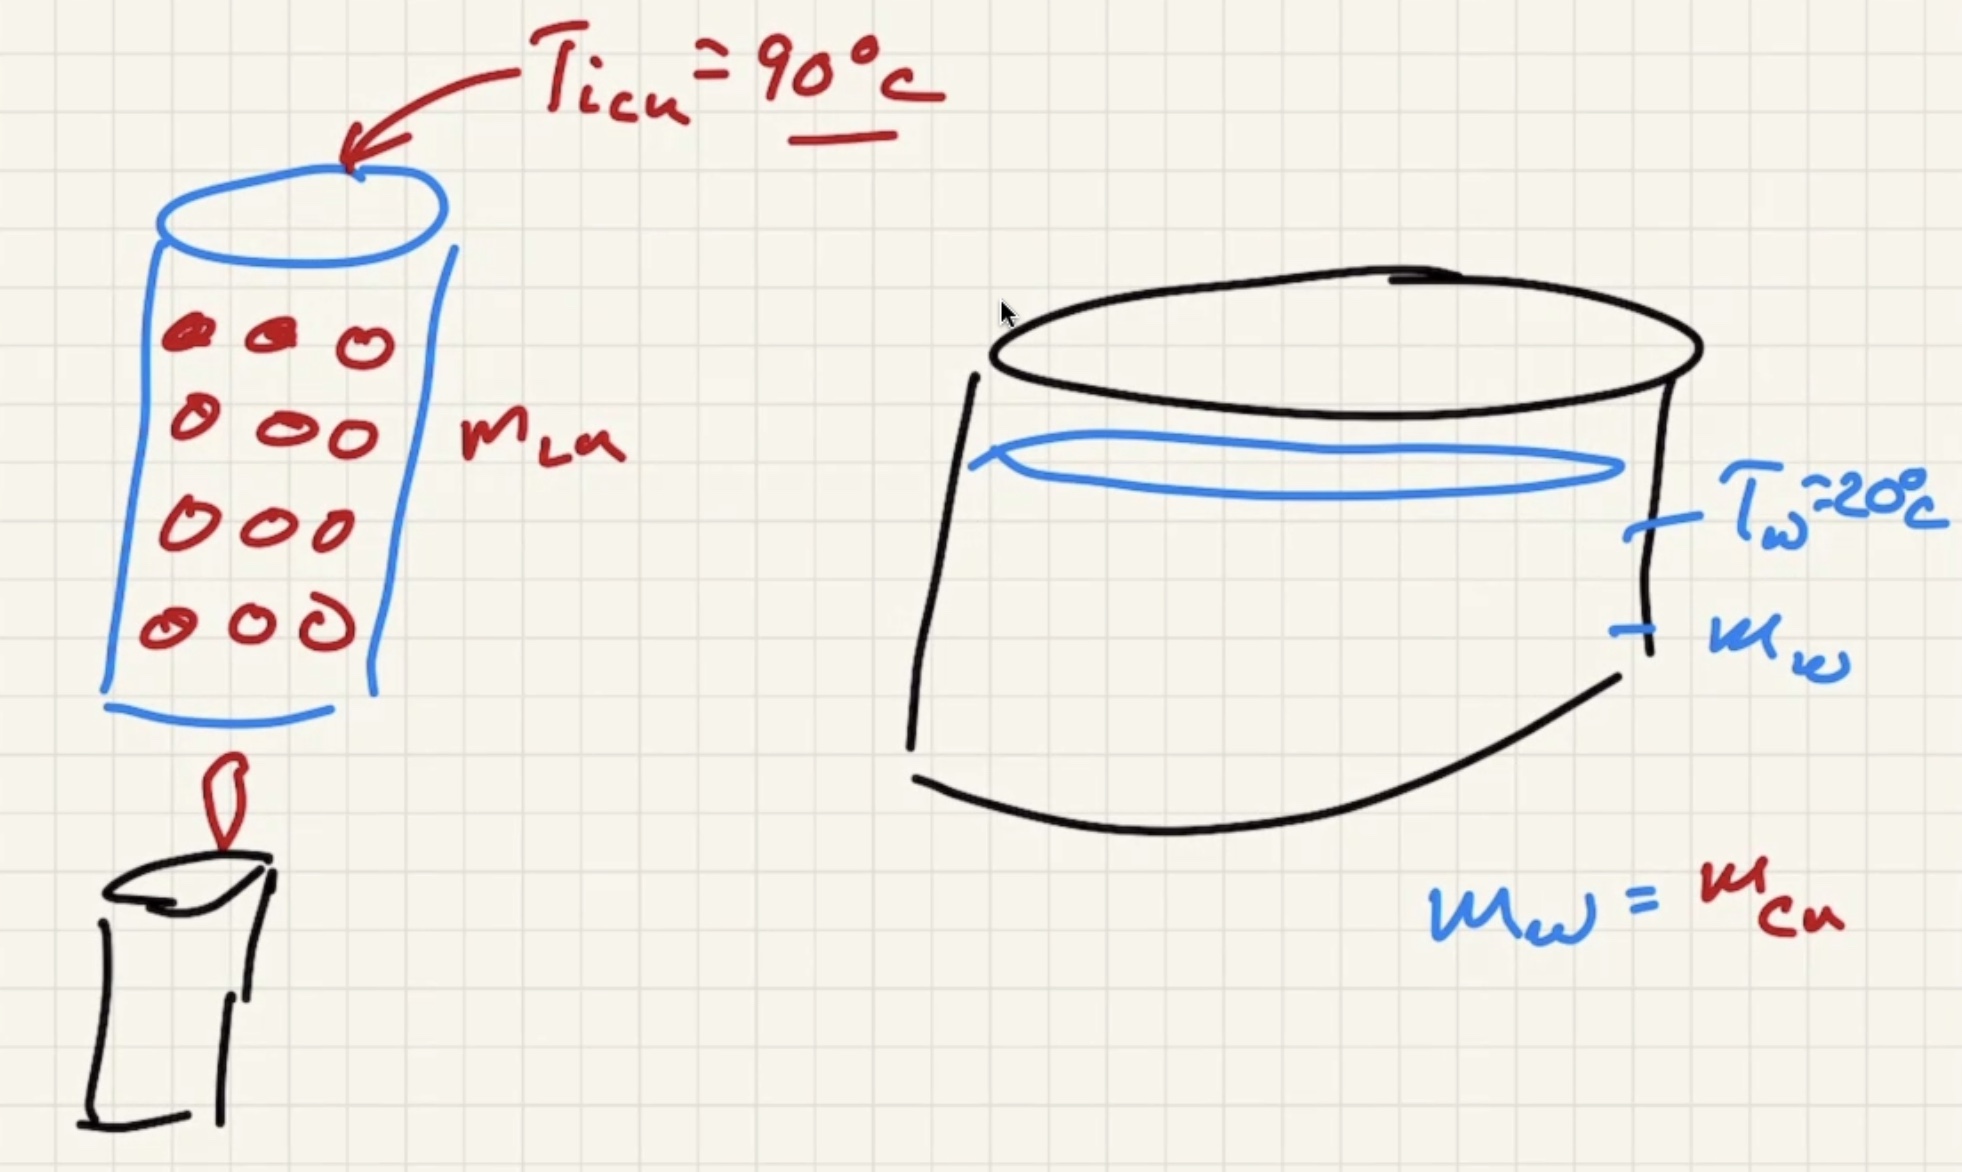 Ticu = 90°C
mcu
Tw = 20°C
mw
mw = mcu